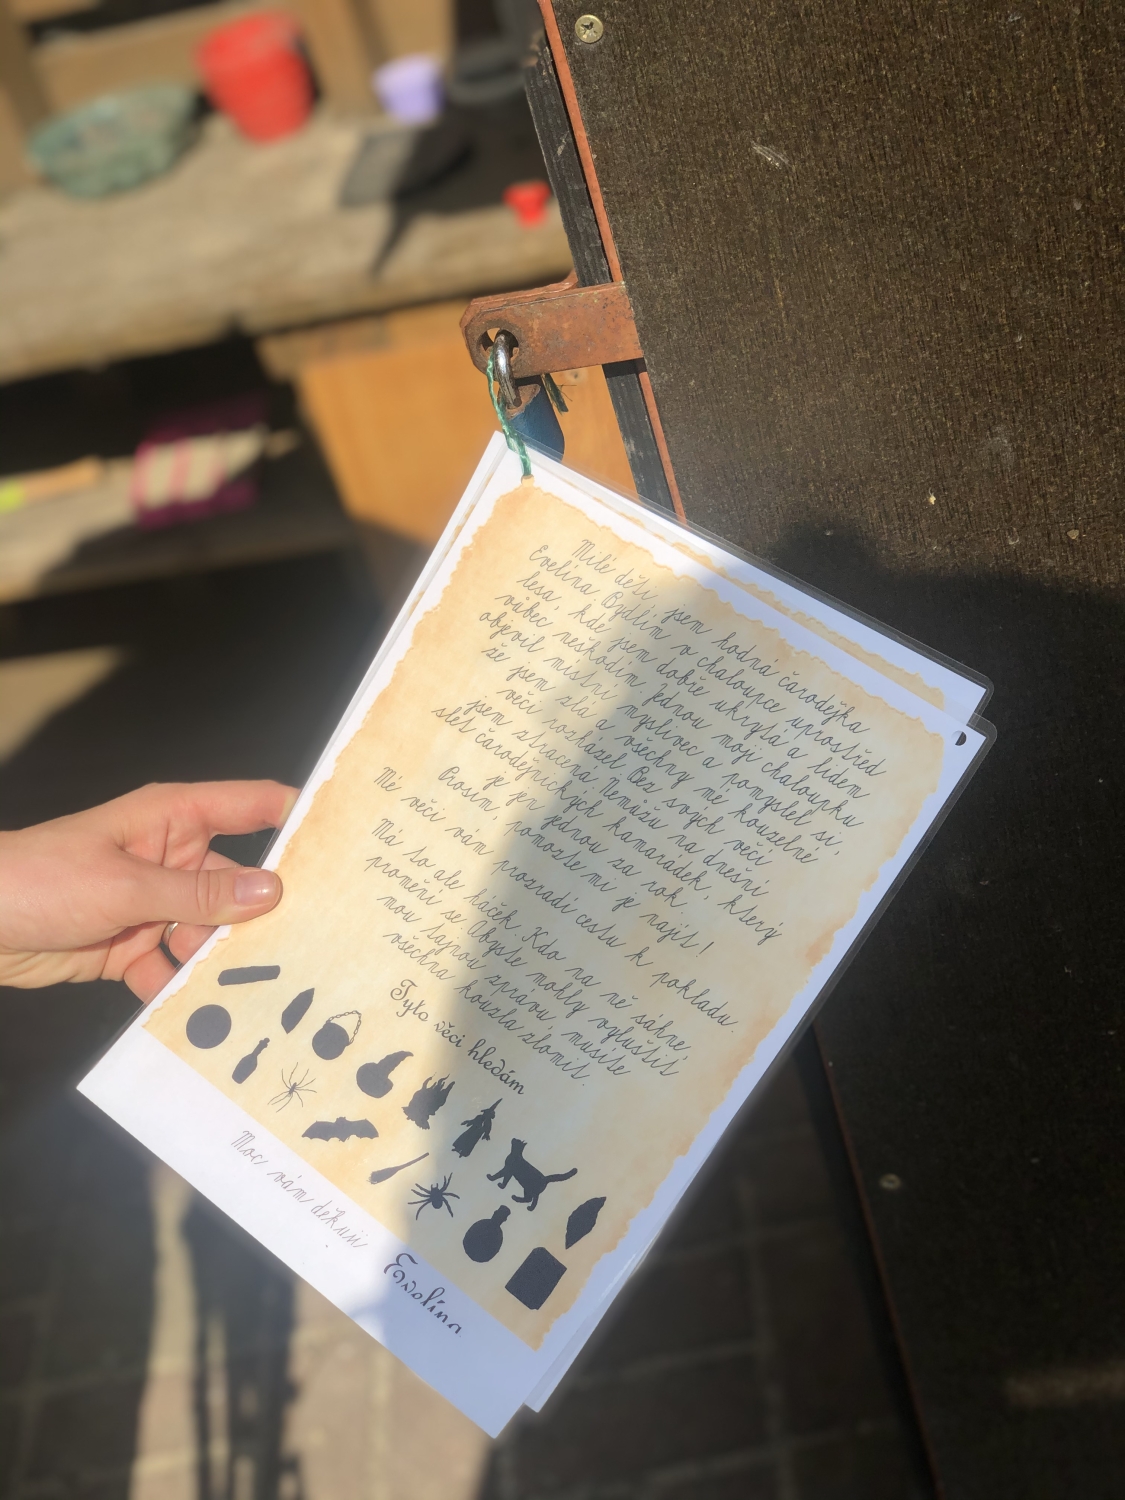 Milé děti, jsem hodná čarodějka
Evelína. Bydlím v chaloupce uprostřed
lesa, kde jsem dobře ukrytá a lidem
vůbec neškodím. Jednou moji chaloupku
objevil místní myslivec a pomyslel si,
že jsem zlá a všechny mé kouzelné
věci rozházel. Bez svých věcí
jsem ztracená. Nemůžu na dnešní
slet čarodějnických kamarádek, který
je jen jednou za rok.
Prosím, pomozte mi je najít!
Mé věci vám prozradí cestu k pokladu.
Má to ale háček. Kdo na ně sáhne,
promění se. Abyste mohly vyluštit
mou tajnou zprávu, musíte
všechna kouzla zlomit.
Tyto věci hledám
Moc vám děkuji
Evelína